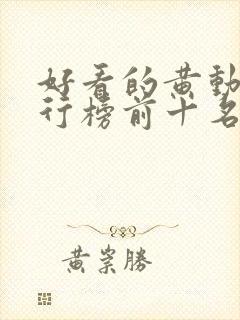 好看的黄動
行榜前十名
黄崇勝